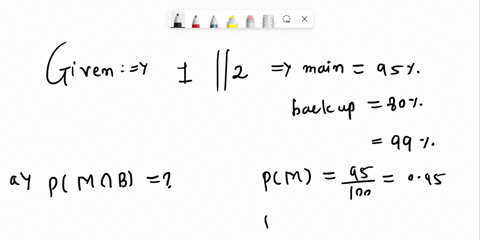 Given :=> 1 || 2 => main = 95%.
backup = 80%
= 99%.
a) P(M∩B) = ?
P(M) = 95/100 = 0.95